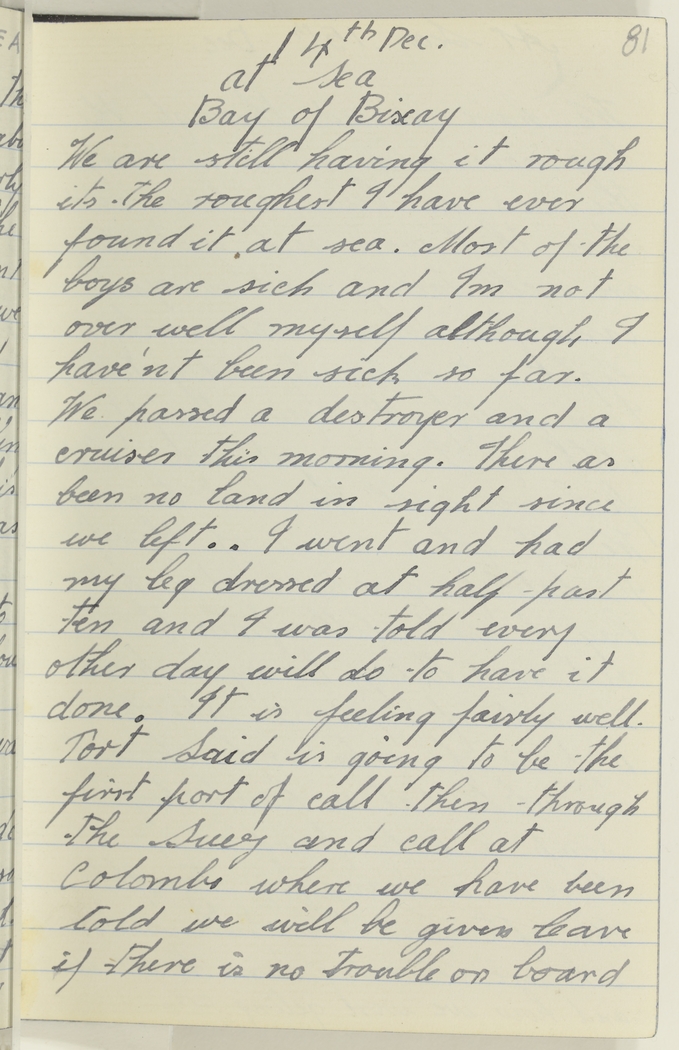 81
14th Dec.
at Sea
Bay of Bixay
We are still having it rough
its the roughest I have ever
found it at sea. Most of the
boys are sick and Im not
over well myself although I
have'nt been sick so far.
We passed a destroyer and a
cruiser this morning. There as
been no land in sight since
we left.. I went and had
my leg dressed at half-past
ten and I was told every
other day will do to have it
done. It is feeling fairly well.
Port Said is going to be the
first port of call then through
the Suez and call at
Colombo where we have been
told we will be given leave
if there is no trouble on board